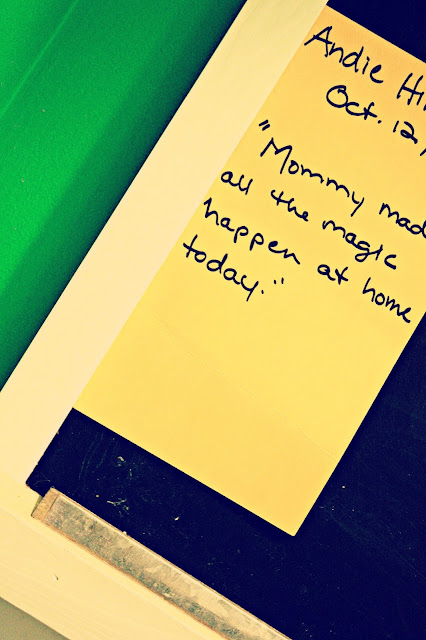 Andie Hi
Oct. 12,
"Mommy mad
all the magic
happen at home
today."